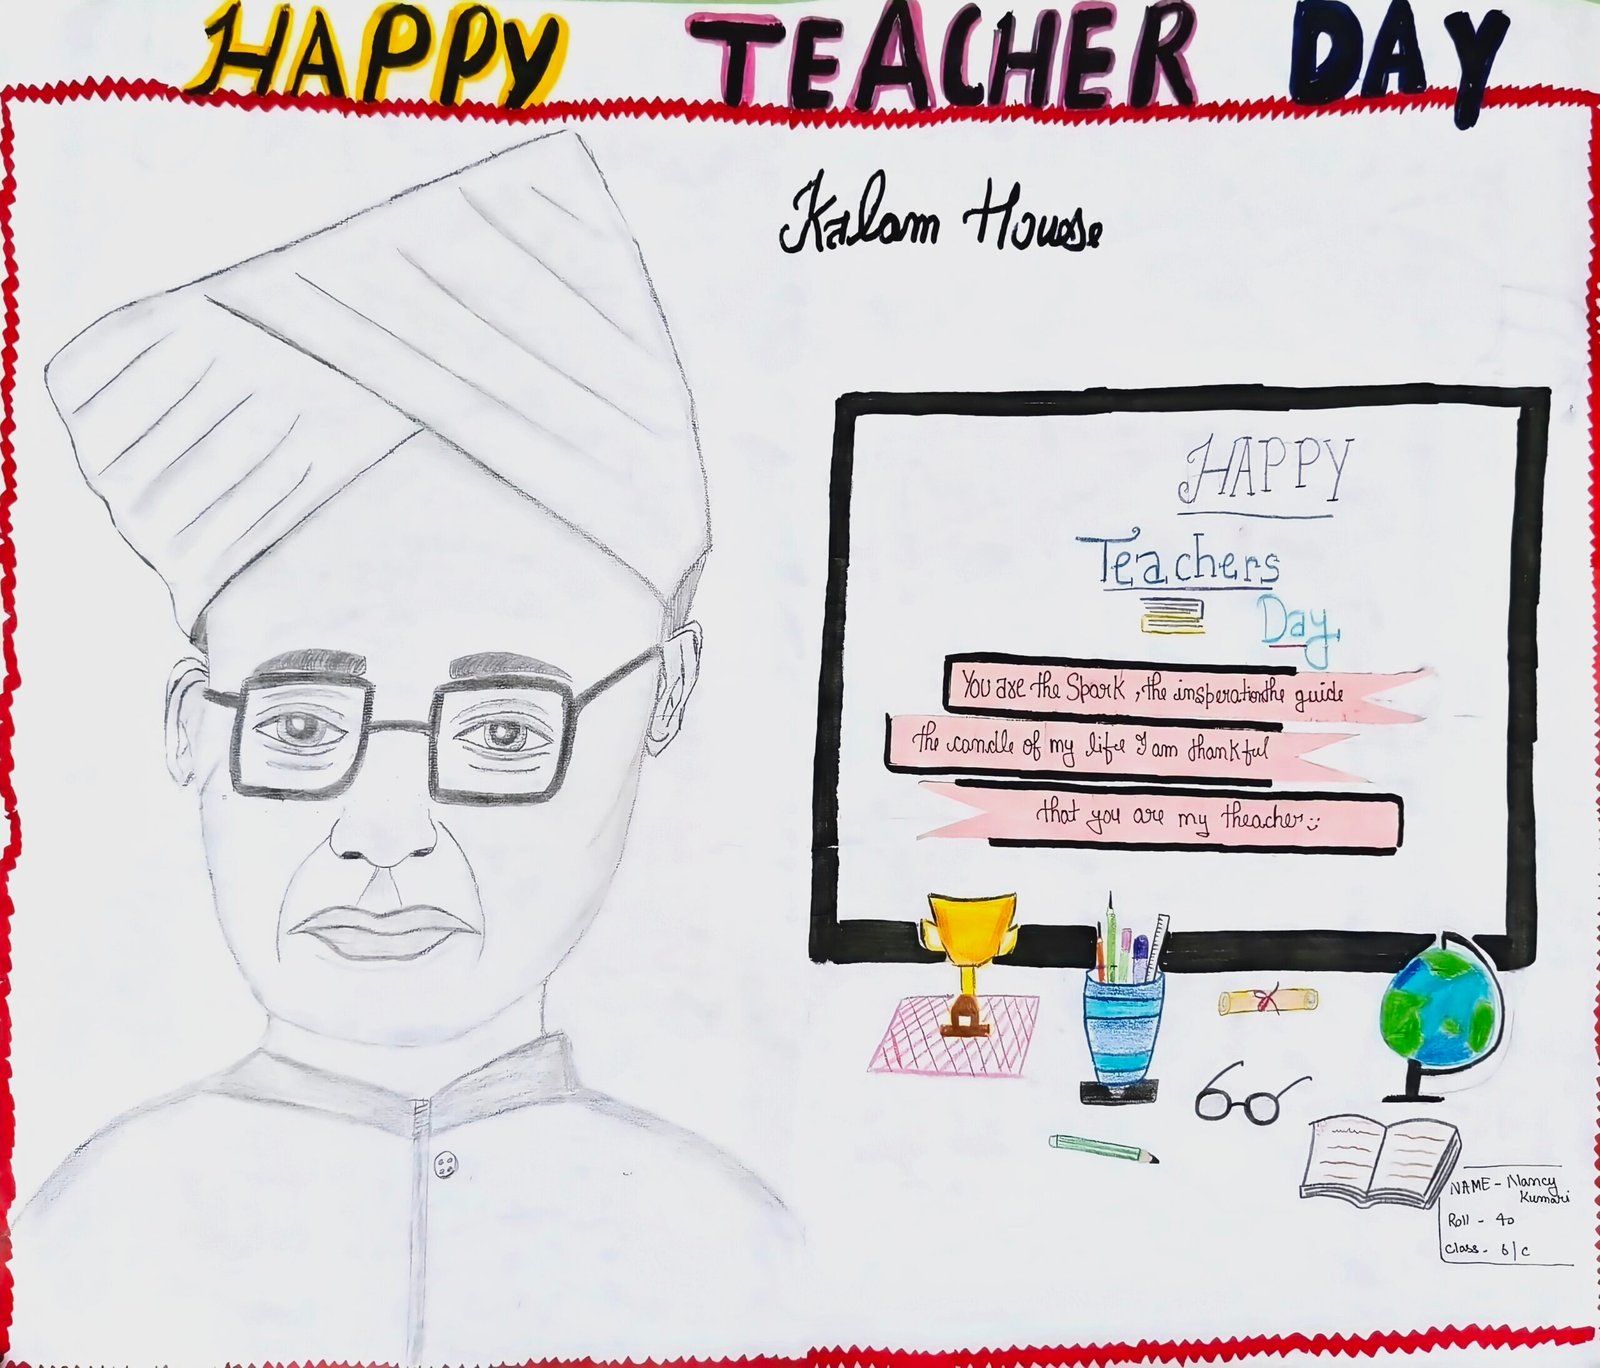 HAPPY TEACHER DAY
Kalam House
HAPPY
Teachers
Day
You are the Spark, the insperation the guide
the candle of my life I am thankful
that you are my theacher
NAME - Nancy
Kumari
Roll - 40
Class - 6/c